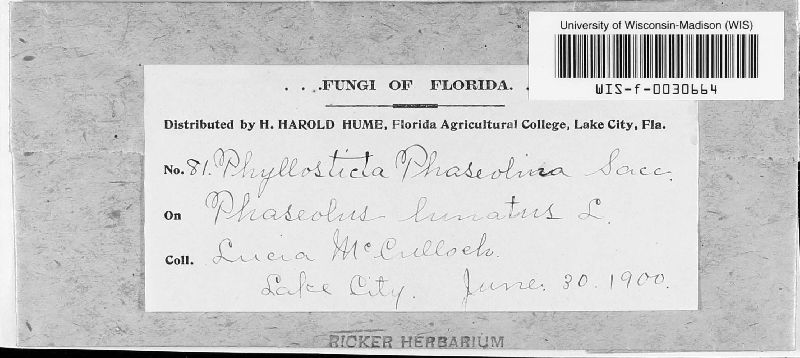 University of Wisconsin-Madison (WIS)
WIS-f-0030664
. . .FUNGI OF FLORIDA. .
Distributed by H. HAROLD HUME, Florida Agricultural College, Lake City, Fla.
No. 81. Phyllosticta Phaseolina Sacc.
On Phaseolus lunatus L.
Coll. Lucia McCulloch.
Lake City. June. 30. 1900.
RICKER HERBARIUM